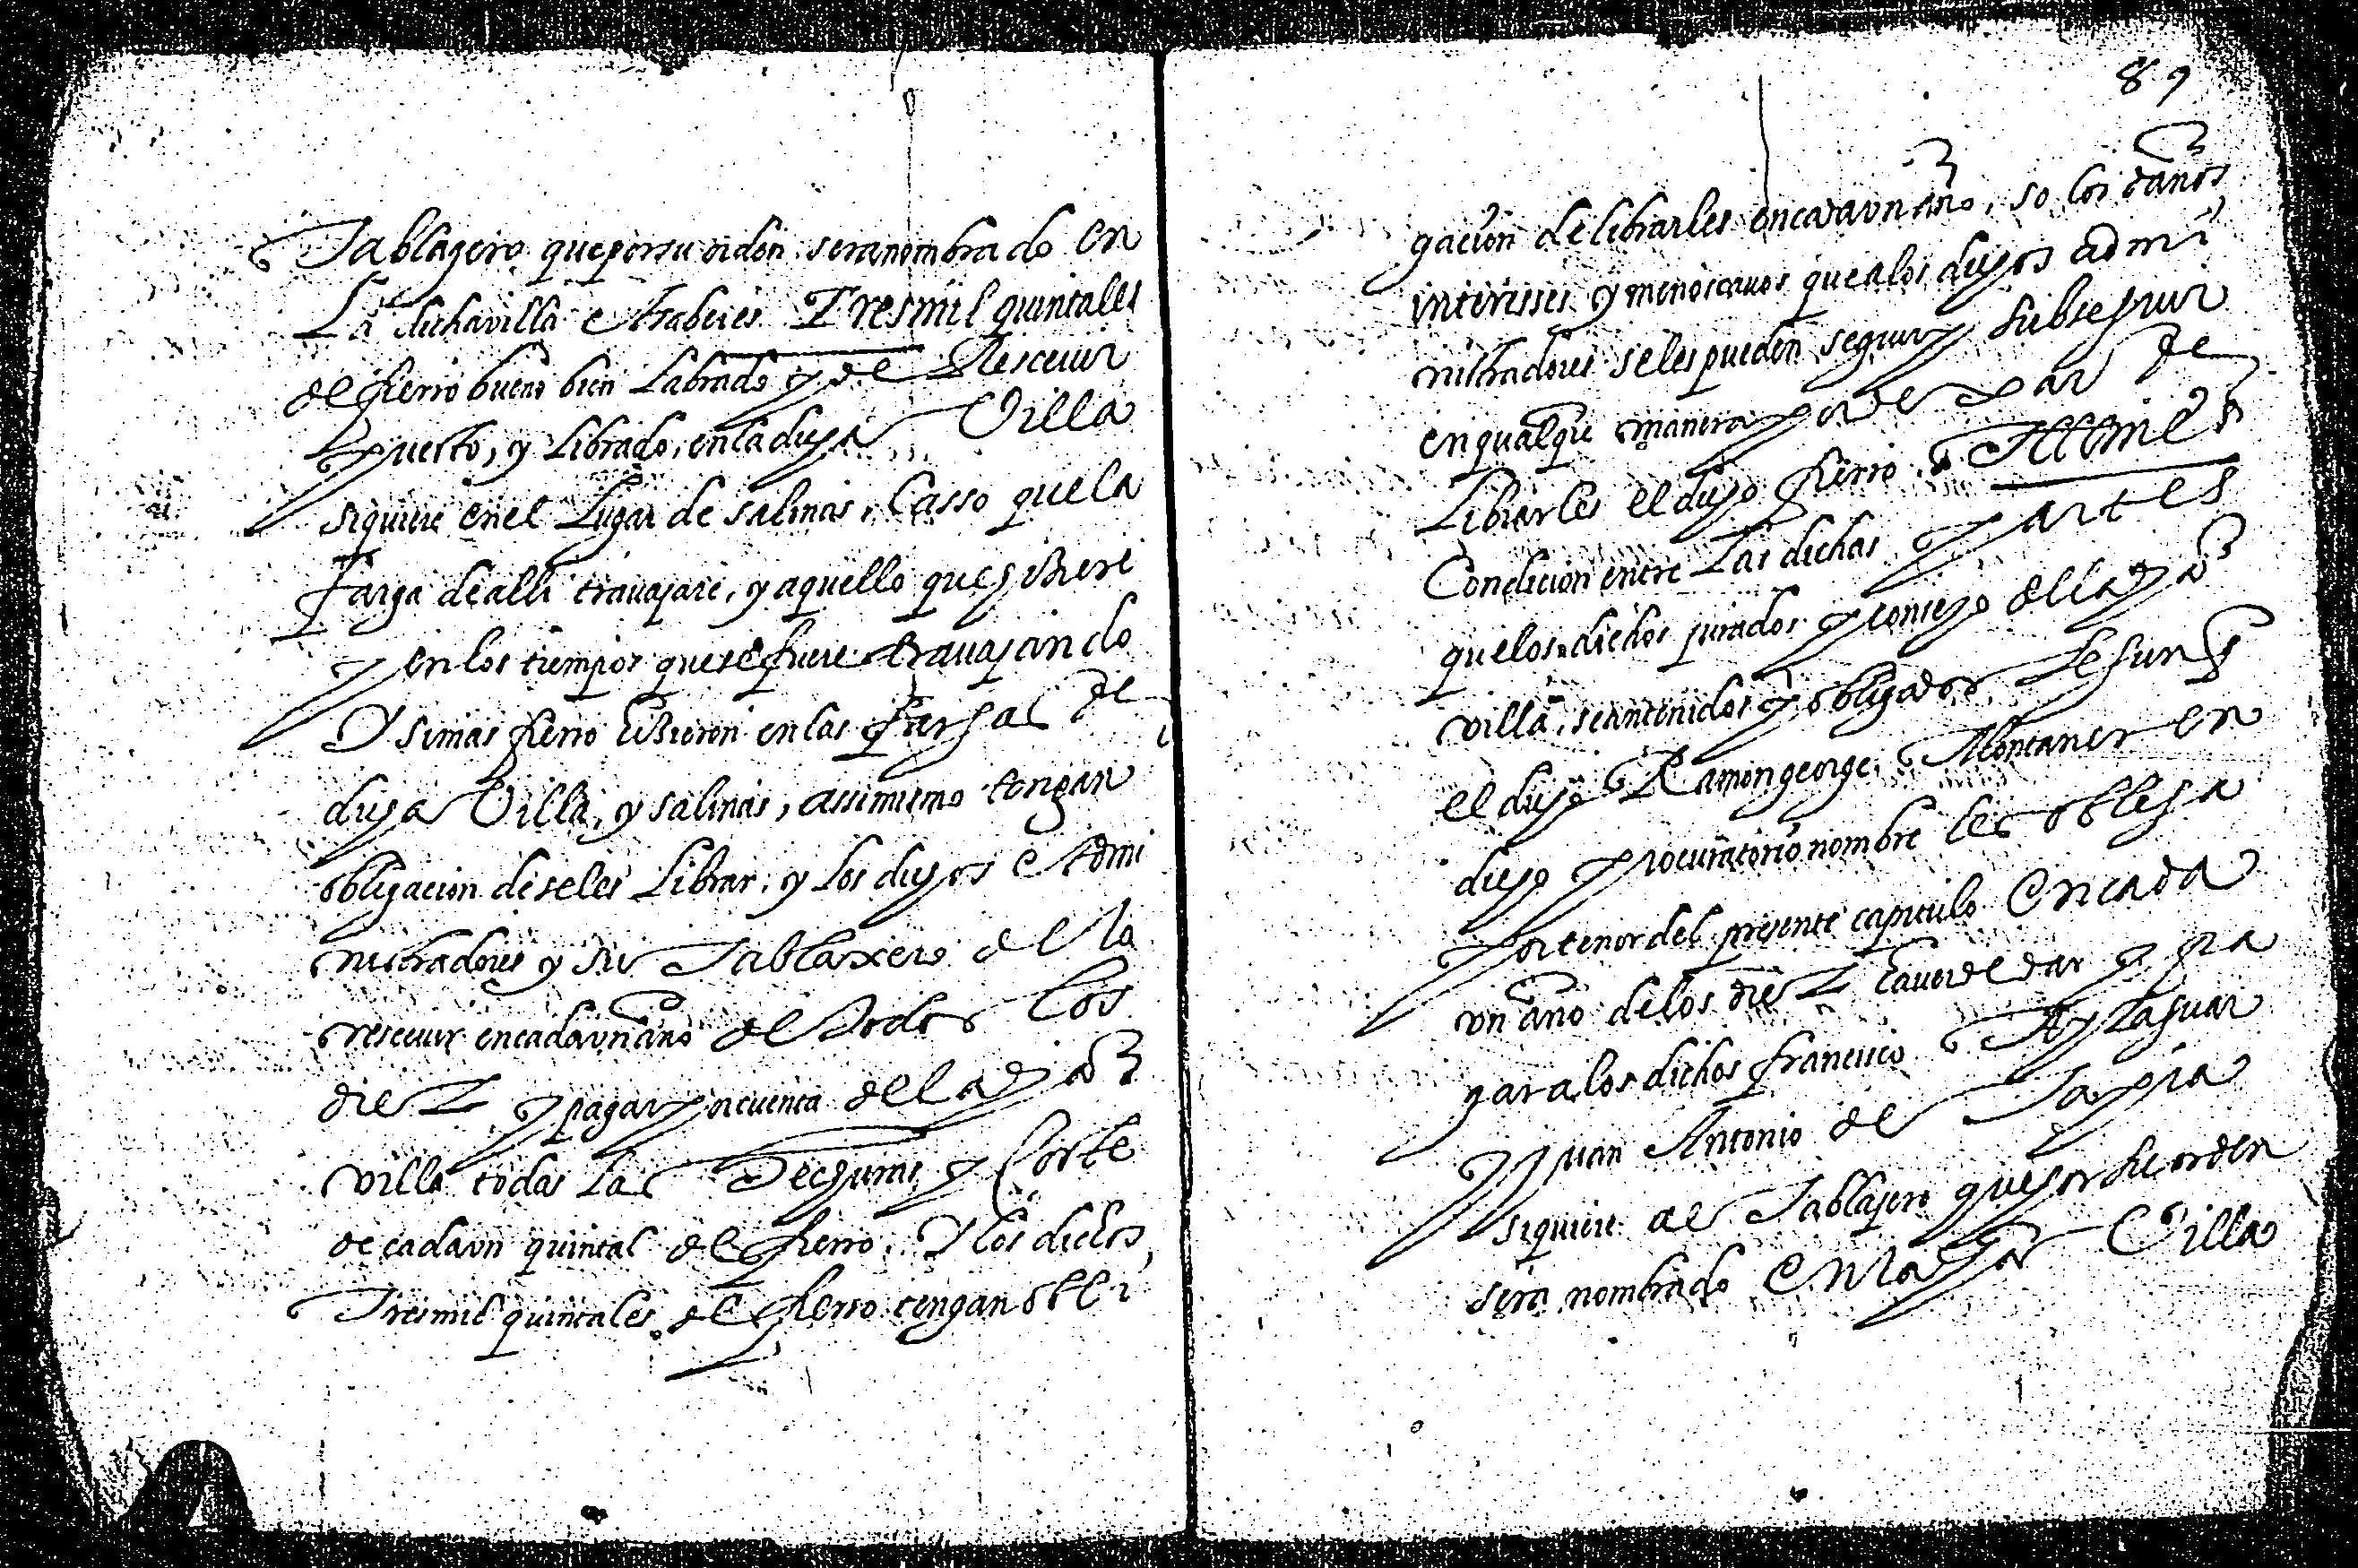 Tablagero que por su orden sera nombrado en
La dicha villa et haberes Tres mil quintales
de fierro bueno bien Labrado y de Rescevir
puesto, y Librado, en la dicha Villa
siquiere en el Lugar de salinas, Casso que la
farga de alli travajare, y aquello que s
y en los tiempos que se fuere travajando
Y si mas fierro hizieron en las fargas de
dicha Villa, y salinas, assi mismo tengan
obligacion de seles Librar, y Los dichos Admi
nistradores y su Tablaxero de la
rescevir en cada un año de todos los
diez y pagar por cuenta de la dicha
villa todas las y Corte
de cada un quintal de fierro, Y los dichos
Tres mil quintales de fierro tengan obli
89
gacion de librarles en cada un año, so los daños
interesses y menoscavos que a los dichos admi
nistradores se les pueden seguir y subseguir
en qualquiere manera por de par de
Librarles el dicho fierro. Ittem es
Condicion entre Las dichas partes
que los dichos jurados y consejo de la dicha
villa, sean tenidos y obligados segun q
el dicho Ramon george Montaner en
dicho procuratorio nombre les obliga
Por tenor del presente capitulo En cada
un año de los diez haver de dar y pa
gar a los dichos francisco Aylaguar
Y Juan Antonio de Tapia
siquiere al Tablajero que por su orden
sera nombrado En la dicha Villa